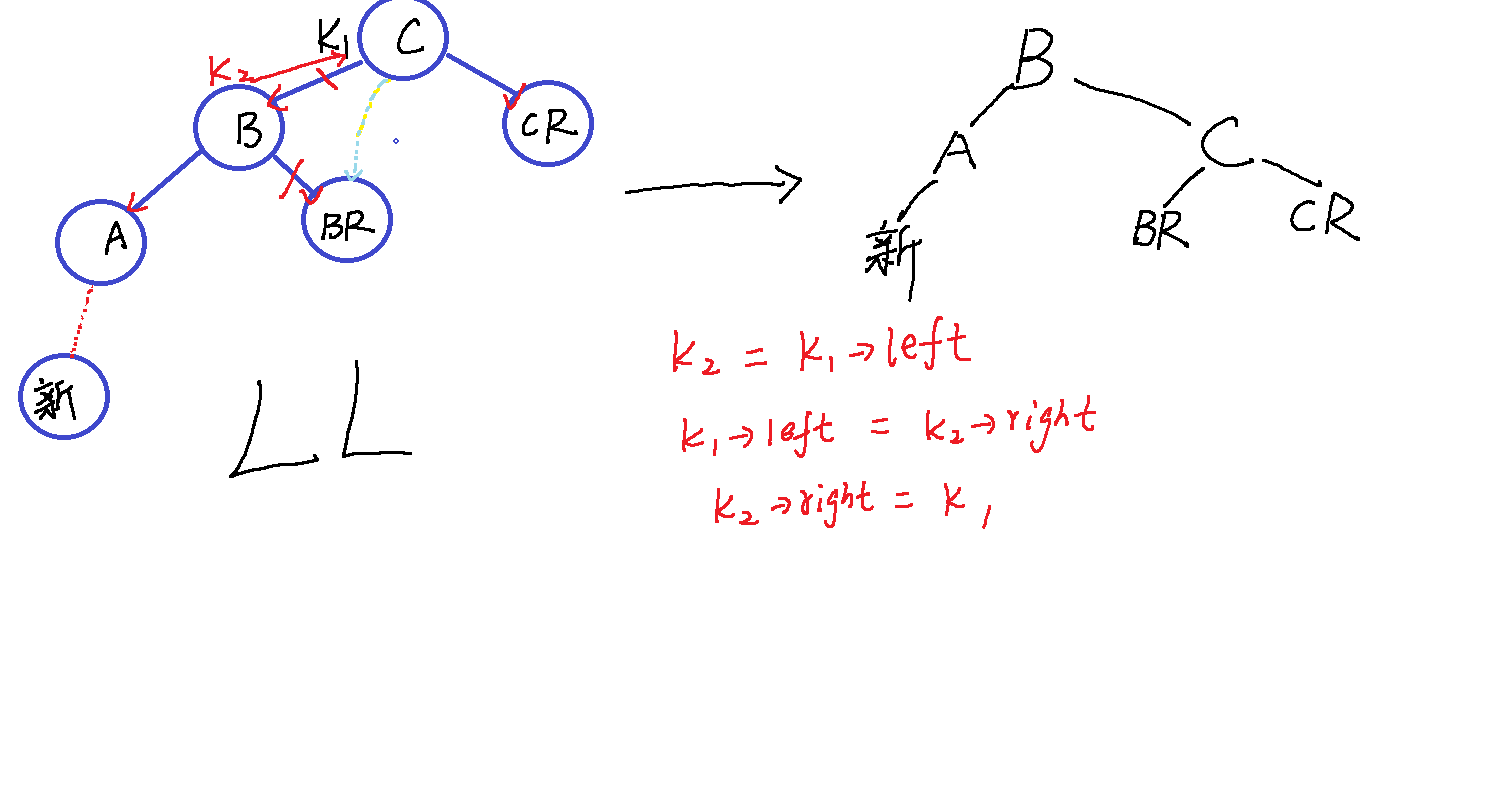 K1 C
K2
B
CR
A
BR
新
LL
B
A
C
新
BR
CR
K2 = K1→left
K1→left = K2→right
K2→right = K1